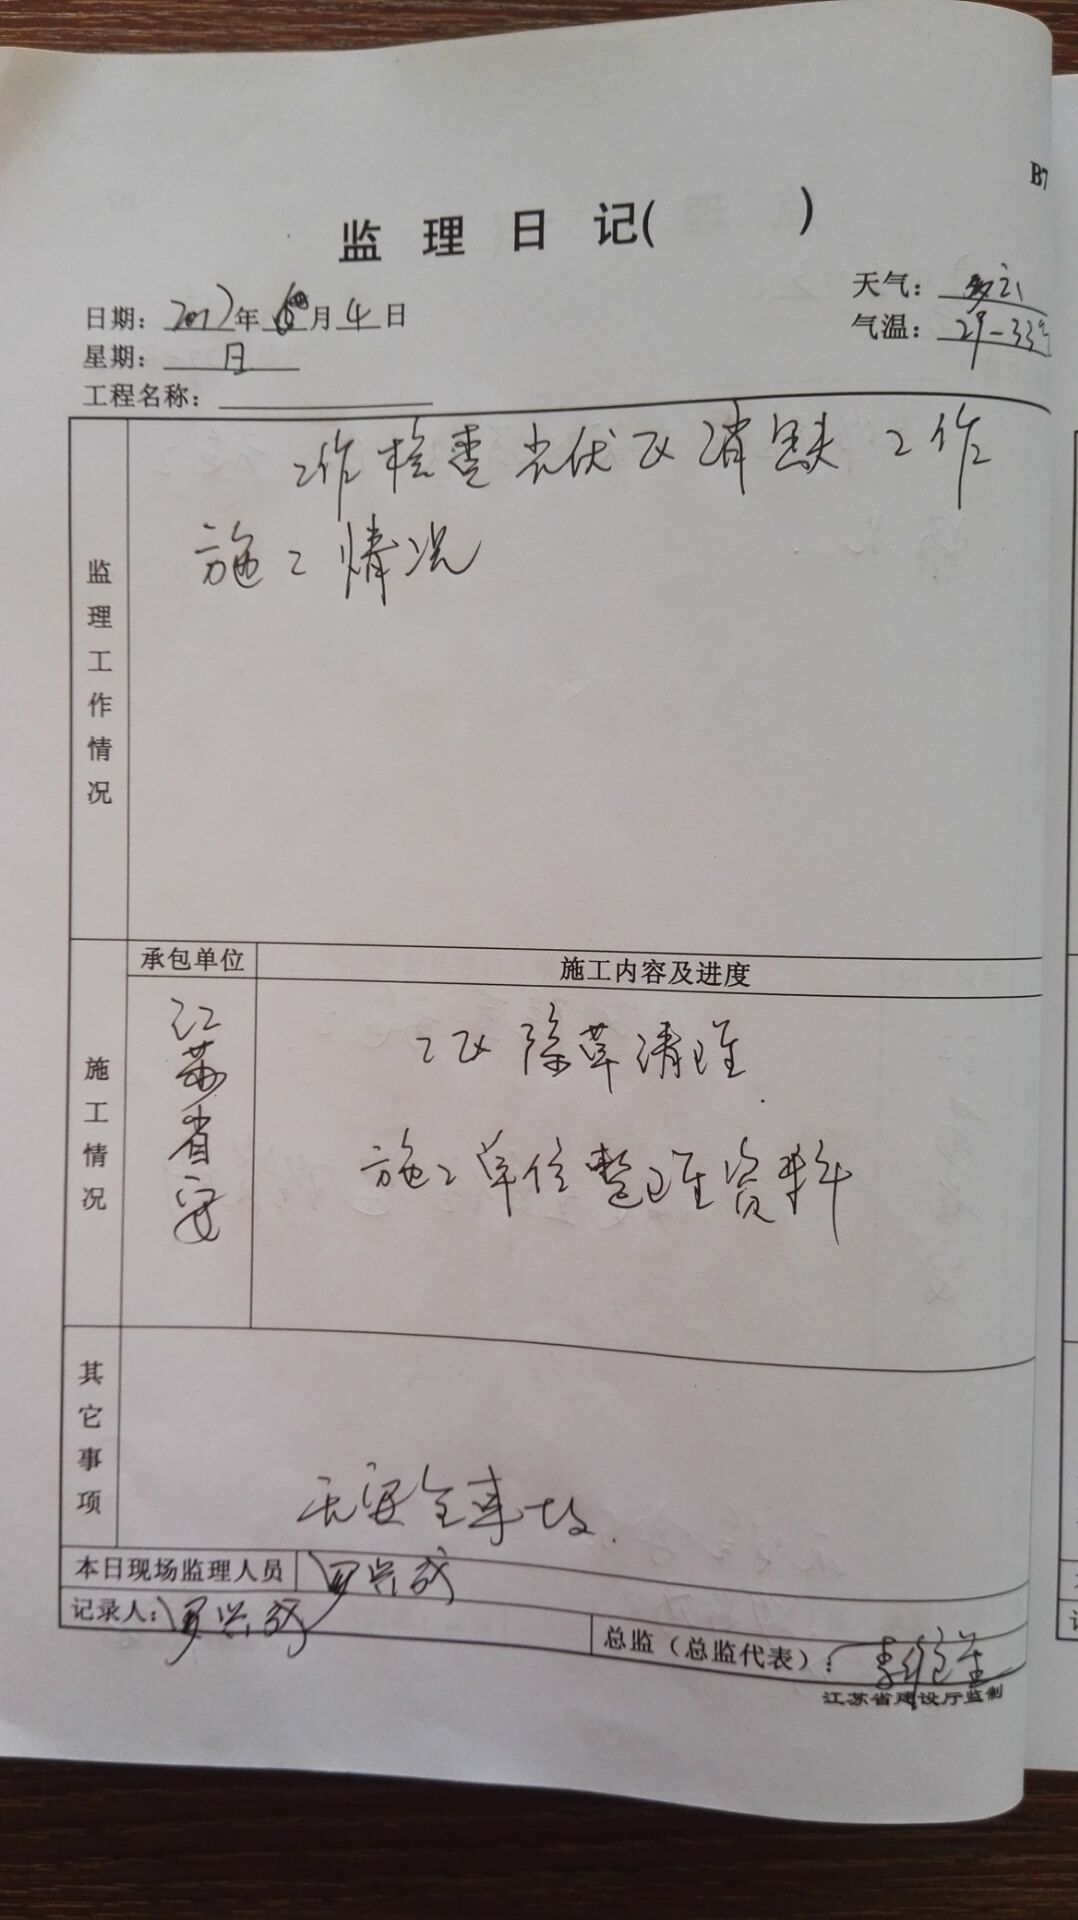 B7
监理日记( )
日期: 2017年6月4日
天气: 多云
星期: 日
气温: 29-33℃
工程名称:
监理工作情况
工作检查光伏区消缺工作
施工情况
施工情况
承包单位
施工内容及进度
江苏省安
工区除草清理.
施工单位整理资料
其它事项
无安全事故.
本日现场监理人员 罗兴成
记录人: 罗兴成
总监（总监代表）: 李
江苏省建设厅监制